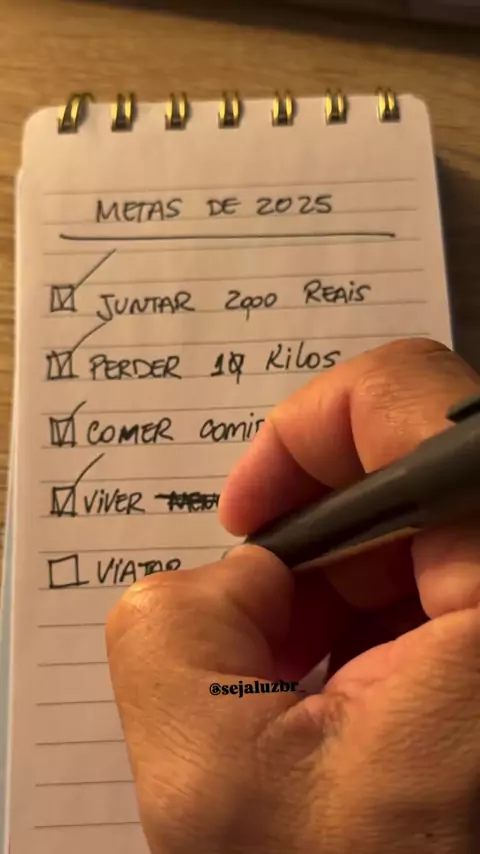 METAS DE 2025
JUNTAR 2000 REAIS
PERDER 10 Kilos
COMER
VIVER
VIAJAR
@sejaluzbr_